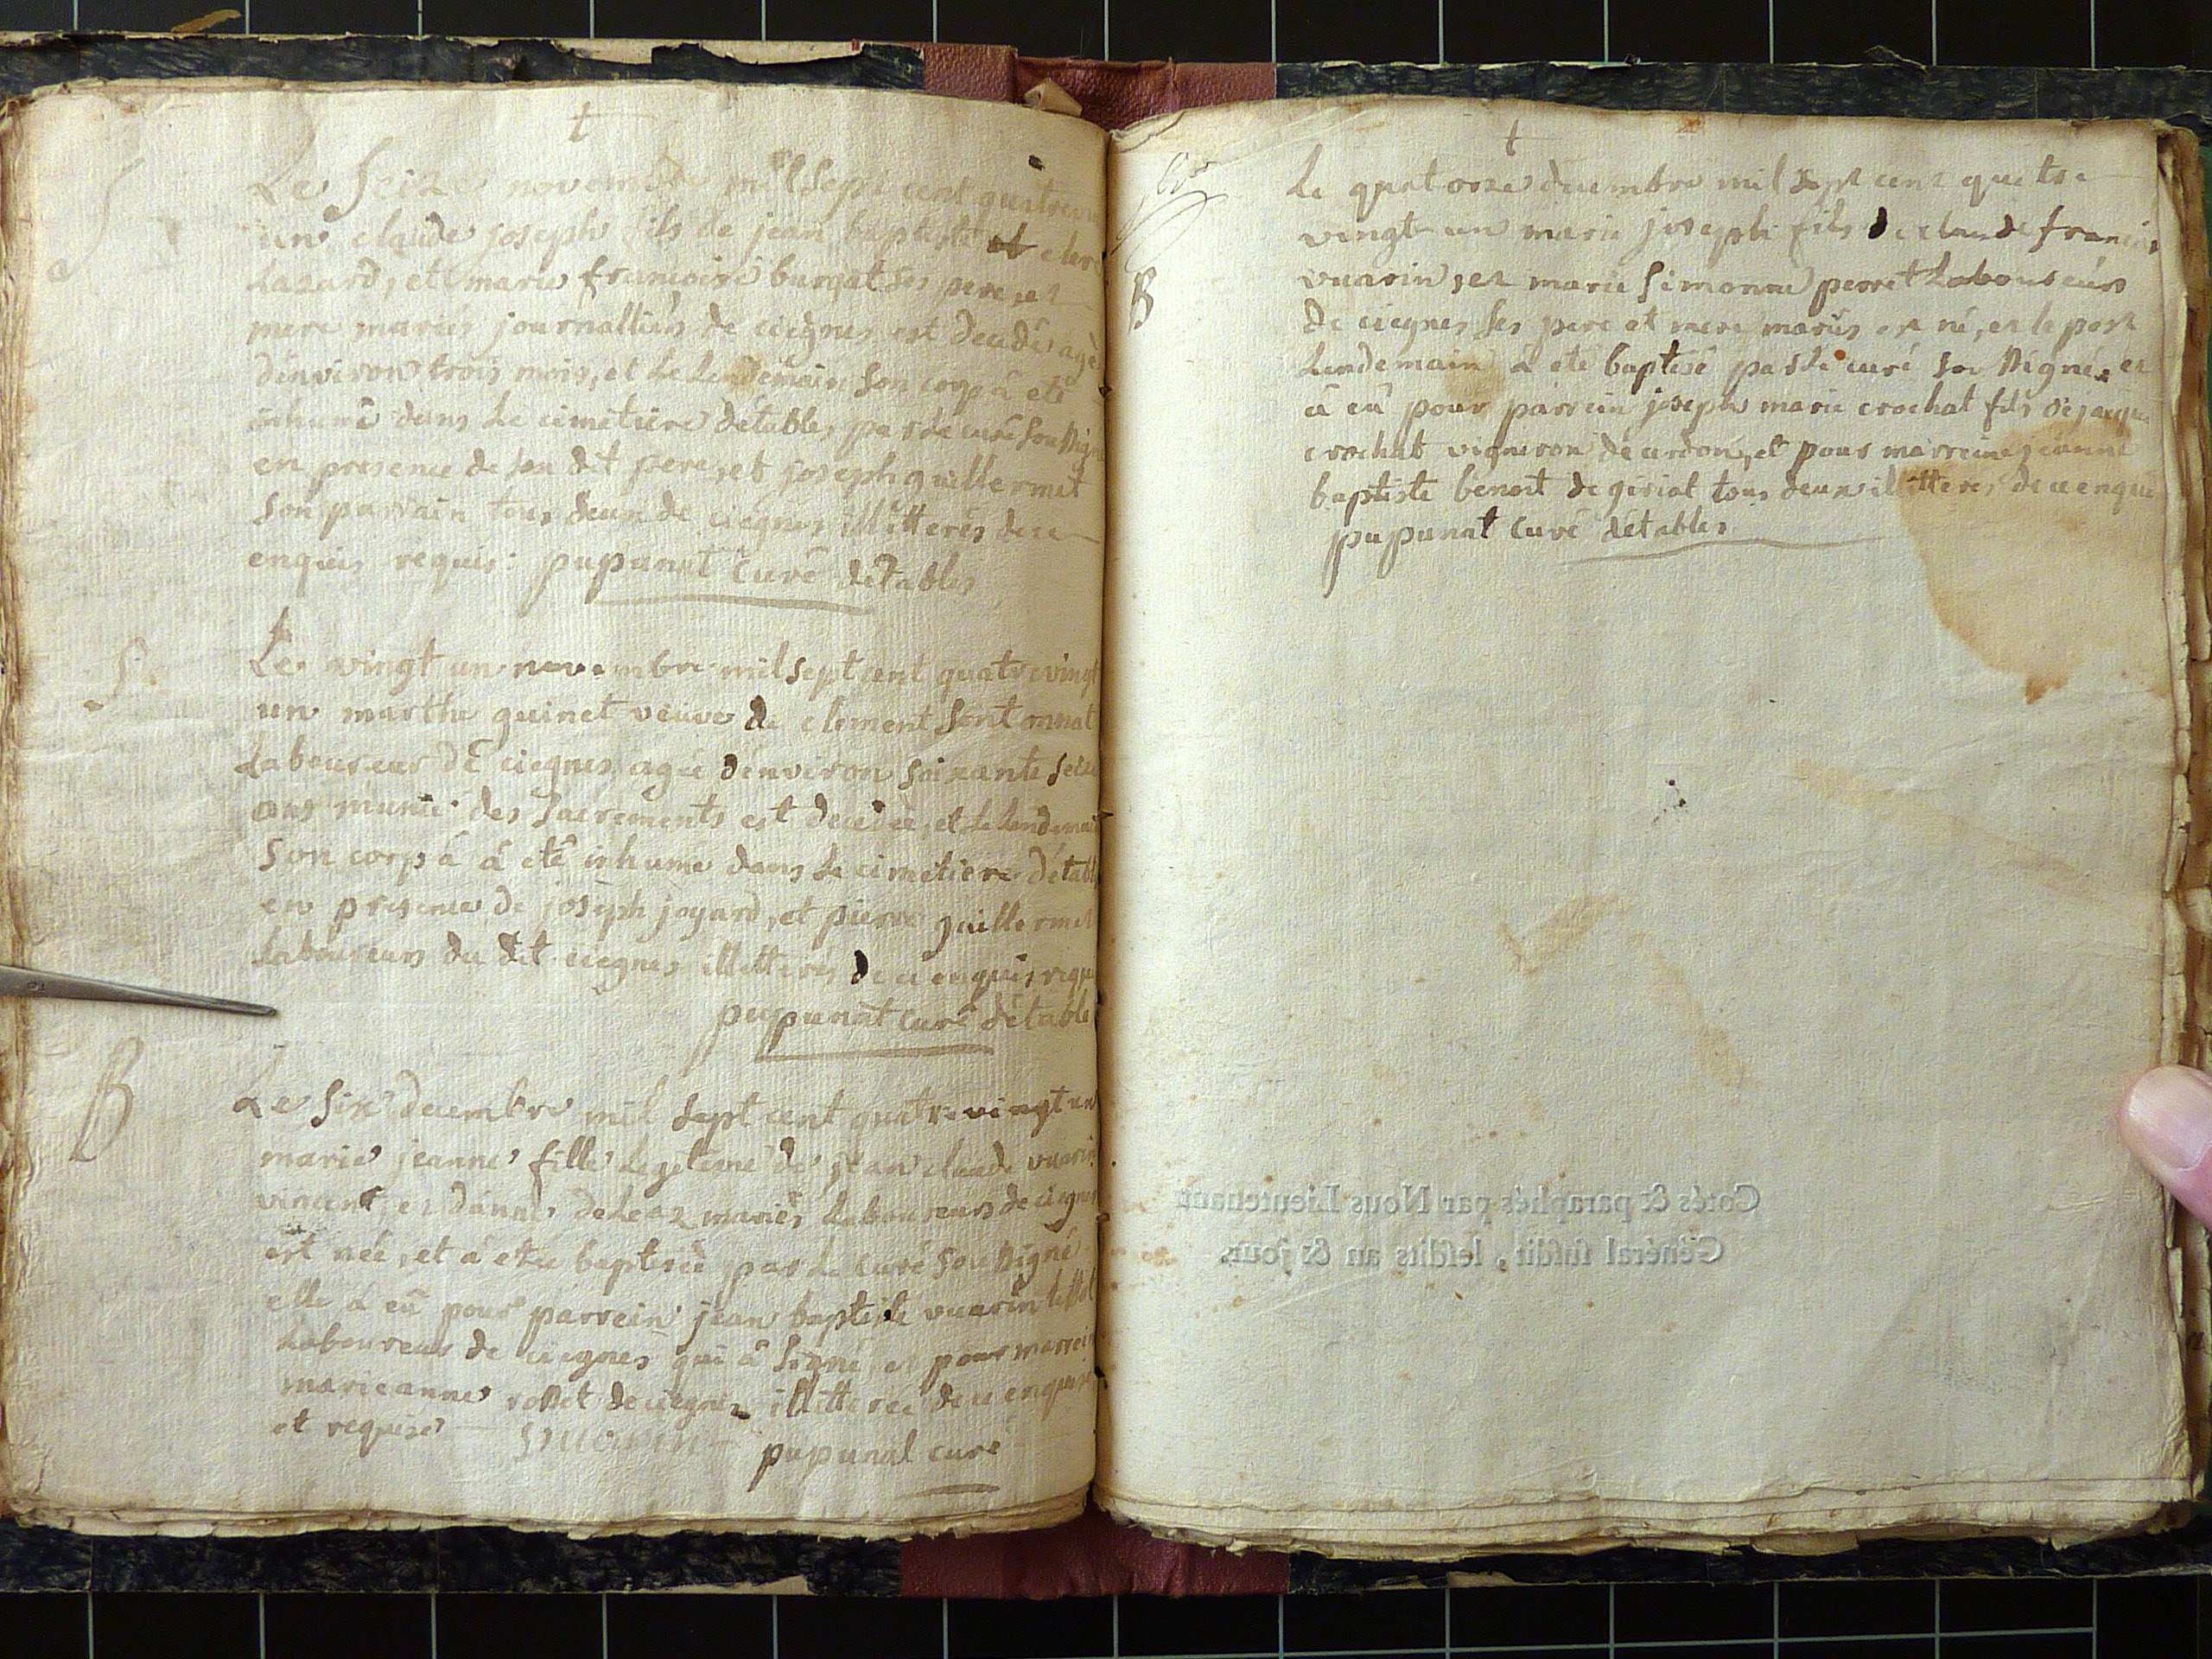 S
Le Seize novembre mil sept cent quatrevin
un claude joseph fils de jean baptiste et clerc
Lazard, et marie francoise burgat ses pere, et
mere mariés journalliers de ciegnes est decedé agé
d'environ trois mois, et le Lendemain son corp á eté
inhumé dans le cimetiere détables par le curé sousigné
en presence de son dit pere, et joseph guillermet
son parrain tous deux de ciegnes illitterés de ce
enquis requis: pupunat Curé détables
S
Le vingt un novembre mil sept cent quatrevingt
un marthe quinet veuve de clement
Laboureur de ciegnes agée d'environ soixante seize
ans munie des Sacrements est decedée, et le Lendemain
Son corps á á eté inhume dans le cimetiere détabl
en presence de joseph joyard, et pierre guillermet
Laboureurs du dit ciegnes illitterés de ce enquis requi
pupunat curé détable
B
Le six decembre mil sept cent quatrevingt un
marie jeanne fille legetime de jean claude vuarin
vincent, et d'anne mariés Laboureurs de ciegnes
est née, et á etée baptisée par le curé sousigné
elle á eû pour parrein jean baptiste vuarin
Laboureur de ciegnes qui á signé, et pour marrein
marieanne rosset de ciegnes illitterée de ce enquise
et requise vuarin pupunat curé
B
Le quatorze decembre mil sept cent quatre
vingt un marie joseph fils de claude francois
vuarin, et marie simonne perret Laboureurs
de ciegnes ses pere et mere mariés est né, et le
Lendemain á eté baptisé par le curé sousigné, et
á eû pour parrein joseph marie crochat fils de jacque
crochat vigneron de cerdon, et pour marreine jeanne
baptiste benoit de giriat tous deux illitteres de ce enqui
pupunat Curé détables
Cotés & paraphés par Nous Lieutenant
Général susdit, lesdits an & jour.